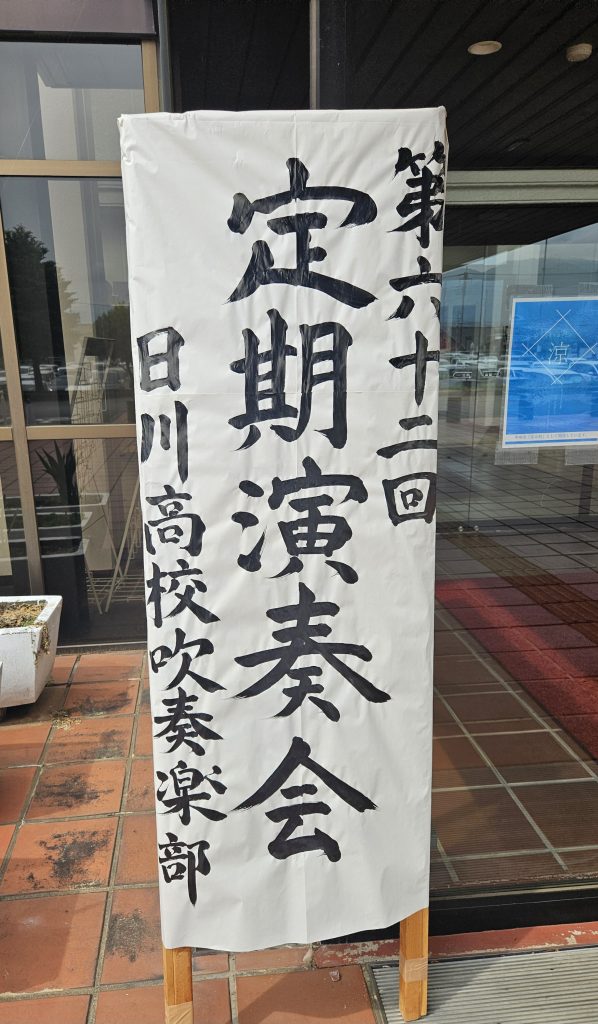 第六十二回
定期演奏会
日川高校吹奏楽部
涼